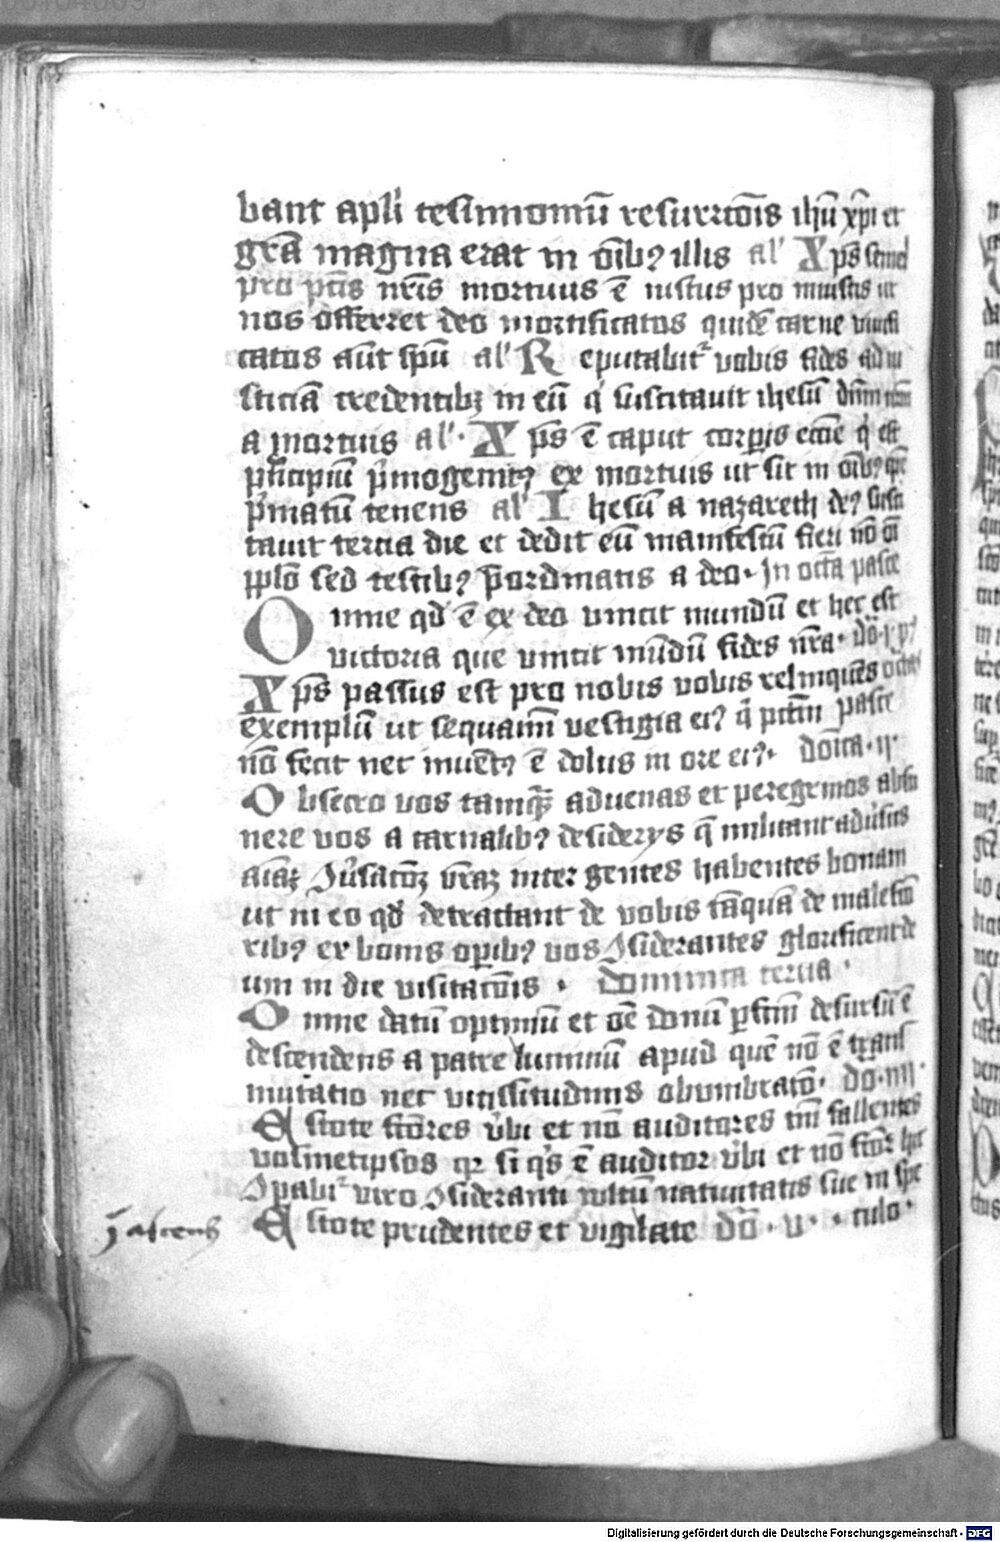 bant apl'i testimoniū resurrcōis ihū xp̄i et
grā magna erat in oīb⁊ illis al' Xp̄s semel
pro pctīs nrīs mortuus ē iustus pro iniustis ut
nos offerret deo mortificatos quidē carne viuifi
catos aūt sp̄u al' Reputabit᷑ vobis fides ad iu
sticiā credentibȝ in eū q' suscitauit ihesū dn̄m nrm̄
a mortuis al'· Xp̄s ē caput corp̲is eccīe q' est
pn̄cipiū p'mogenit⁊ ex mortuis ut sit in oīb⁊ ip̄e
p'matū tenens al' Ihesū a nazareth de⁊ susci
tauit tercia die et dedit eū manifestū fieri nō oī
pp̄lo sed testib⁊ p̄ordinatis a deo· In octā pasce
Omne qd̄ ē ex deo vincit mundū et hec est
victoria que vincit mūdū fides nr̄a· dō·j·p⁊
Xp̄s passus est pro nobis vobis relinquēs octās
exemplū ut sequaim̄ vestigia ei⁊ q̄ pctm̄ pasce
nō fecit nec inuēt⁊ ē dolus in ore ei⁊· doīca·ij·
Obsecro vos tamq̄ȝ aduenas et peregrinos absti
nere vos a carnalib⁊ desiderijs q̄ militant adu'sus
aīaȝ ɔu'satōȝ vr̄aȝ inter gentes habentes bonam
ut in eo qd̄ detractant de vobis tāquā de malefco
rib⁊ ex bonis op̲ib⁊ vos ɔsiderantes glorificent de
um in die visitatōis · dominica tercia·
Omne datū optimū et oē donū p̲fcm̄ desursū ē
descendens a patre luminū apud quē nō ē trans
mutatio nec vicissitudinis obumbratō· do·iiij·
Estote fcōres v'bi et nō auditores tm̄ fallentes
vosmetipsos qr si q's ē auditor v'bi et nō fcōr hic
ɔpabit᷑ viro ɔsideranti vultū natiuitatis sue in spe
Estote prudentes et vigilate dō·v·culo·
J̄ ascens